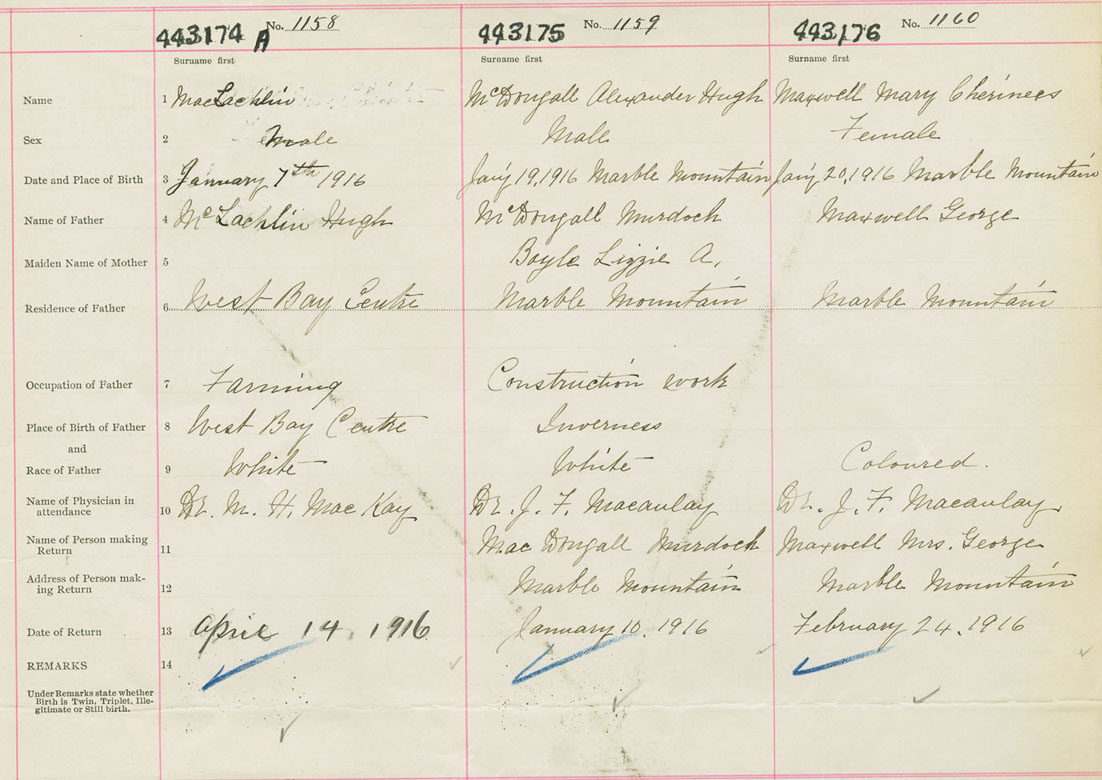 443174 A No. 1158 443175 No. 1159 443176 No. 1160
Surname first Surname first Surname first
Name 1 MacLachlin McDougall Alexander Hugh Maxwell Mary Cherinees
Sex 2 Male Male Female
Date and Place of Birth 3 January 7th 1916 Jan'y 19, 1916 Marble Mountain Jan'y 20, 1916 Marble Mountain
Name of Father 4 McLachlin Hugh McDougall Murdock Maxwell George
Maiden Name of Mother 5 Boyle Lizzie A,
Residence of Father 6 West Bay Centre Marble Mountain Marble Mountain
Occupation of Father 7 Farming Construction work
Place of Birth of Father 8 West Bay Centre Inverness
and
Race of Father 9 White White Coloured.
Name of Physician in
attendance 10 Dr. M. H. MacKay Dr. J. F. Macaulay Dr. J. F. Macaulay,
Name of Person making
Return 11 MacDougall Murdock Maxwell Mrs. George
Address of Person mak-
ing Return 12 Marble Mountain Marble Mountain
Date of Return 13 April 14, 1916 January 10, 1916 February 24, 1916
REMARKS 14
Under Remarks state whether
Birth is Twin, Triplet, Ille-
gitimate or Still birth.